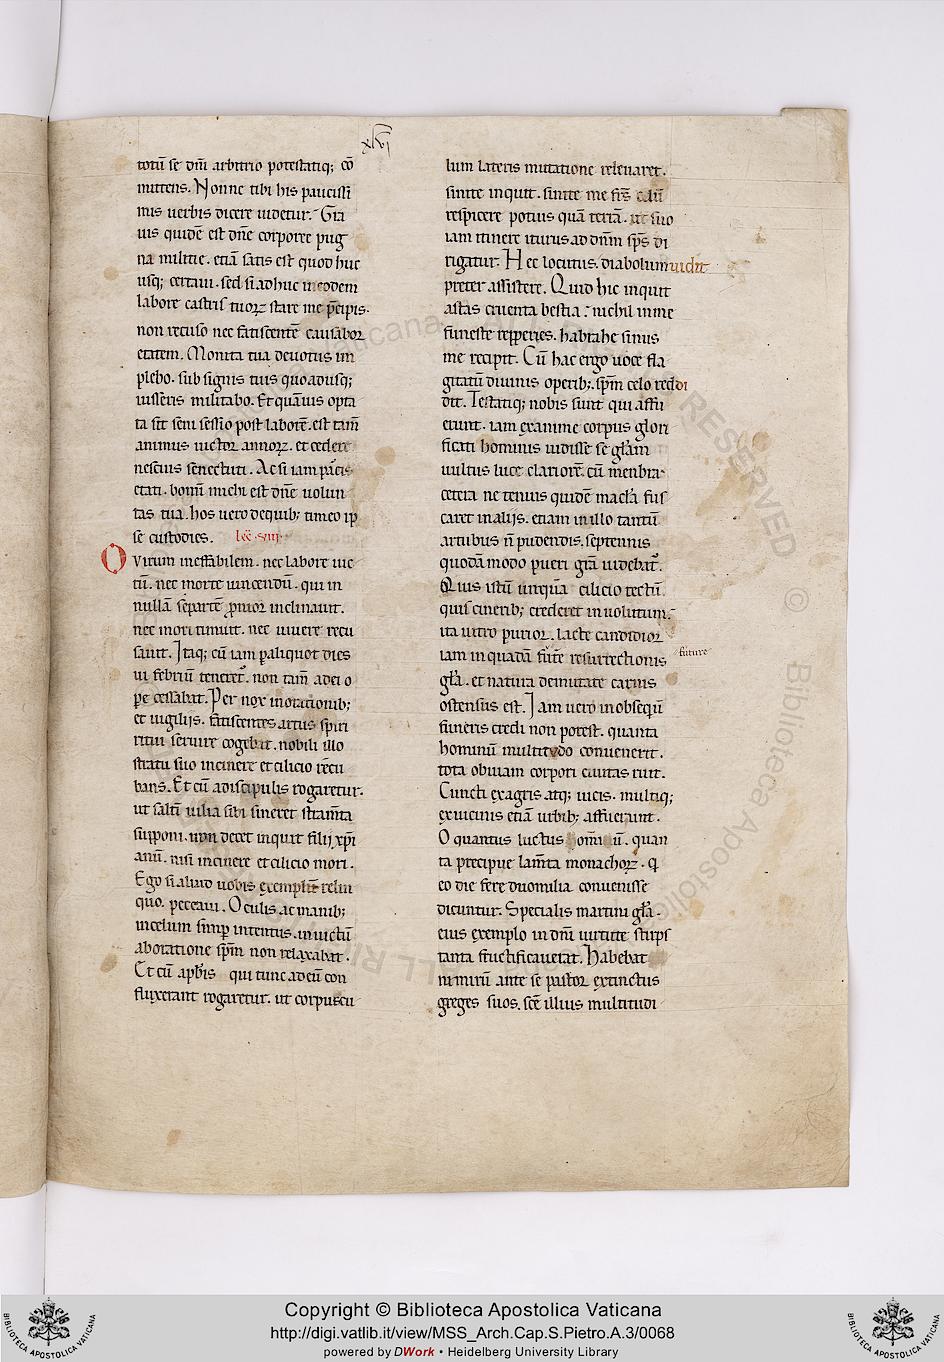 xlvj
totũ se dñi arbitrio potestatiq; cõ
mittens. Nonne tibi his paucissi
mis uerbis dicere uidetur. Gra
uis quidẽ est dñe corporee pug
na militie. etiã satis est quod huc
usq; certaui. sed si adhuc in eodem
labore castris tuorꝝ stare me p̃cipis.
non recuso nec fatiscentẽ causabor
etatem. Monita tua deuotus im
plebo. sub signis tuis quoadusq;
iusseris militabo. Et quãuis opta
ta sit seni sessio post laborẽ. est tam̃
animus uictor annorꝝ. et cedere
nescius senectuti. Ac si iam parcis
etati. bonũ michi est dñe uolun
tas tua. hos uero de quib; timeo ip̃
se custodies. lec̃ .viij.
O virum ineffabilem. nec labore uic
tũ. nec morte uincendũ. qui in
nullã se partẽ pronior inclinauit.
nec mori timuit. nec uiuere recu
sauit. Itaq; cũ iam p aliquot dies
ui febriũ teneret̃. non tam̃ a dei o
pe cessabat. Per nox in orationib;
et uigilijs. fatiscentes artus spiri
ritui seruire cogebat. nobili illo
stratu suo in cinere et cilicio recũ
bans. Et cũ a discipulis rogaretur.
ut saltũ uilia sibi sineret stram̃ta
supponi. non decet inquit filij xpi
anũ. nisi in cinere et cilicio mori.
Ego si aliud uobis exemplũ relin
quo. peccaui. Oculis ac manib;
in celum semp intentus. inuictũ
ab oratione spm̃ non relaxabat.
Et cũ a p̃b̃is qui tunc ad eũ con
fluxerant rogaretur. ut corpuscu
lum lateris mutatione releuaret.
sinite inquit. sinite me fr̃s celũ
respicere potius quã terrã. ut suo
iam itinere iturus ad dnm̃ sp̃s di
rigatur. Hec locutus. diabolum uidit
preter assistere. Quid hic inquit
astas cruenta bestia? nichil in me
funeste repperies. habrahe sinus
me recipit. Cũ hac ergo uoce fla
gitatũ diuinis operib;. spm̃ celo reddi
dit. Testatiq; nobis sunt qui affu
erunt. iam exanime corpus glori
ficati hominis uidisse se glam̃
uultus luce clariorẽ. cũ menbra
cetera ne tenuis quidẽ macla fus
caret in alijs. etiam in illo tantũ
artubus ñ pudendis. septennis
quodã modo pueri gra uidebat̃.
Quis istũ unquã cilicio tectũ.
quis cinerib; crederet inuolutum.
ita uitro purior. lacte candidior
iam in quadã fute resurrectionis future
gla. et natura demutate carnis
ostensus est. Iam uero in obsequũ
funeris credi non potest. quanta
hominũ multitudo conuenerit.
tota obuiam corpori ciuitas ruit.
Cuncti ex agris atq; uicis. multiq;
ex uicinis etiã urbib; affuerunt.
O quantus luctus om̃iũ. quan
ta precipue lam̃ta monachorꝝ. q
eo die fere duo milia conuenisse
dicuntur. Specialis martini gla.
eius exemplo in dñi uirtute stirps
tanta fructificauerat. Habebat
nimirũ ante se pastor extinctus
greges suos. sce illius multitudi
Copyright © Biblioteca Apostolica Vaticana
http://digi.vatlib.it/view/MSS_Arch.Cap.S.Pietro.A.3/0068
powered by DWork • Heidelberg University Library